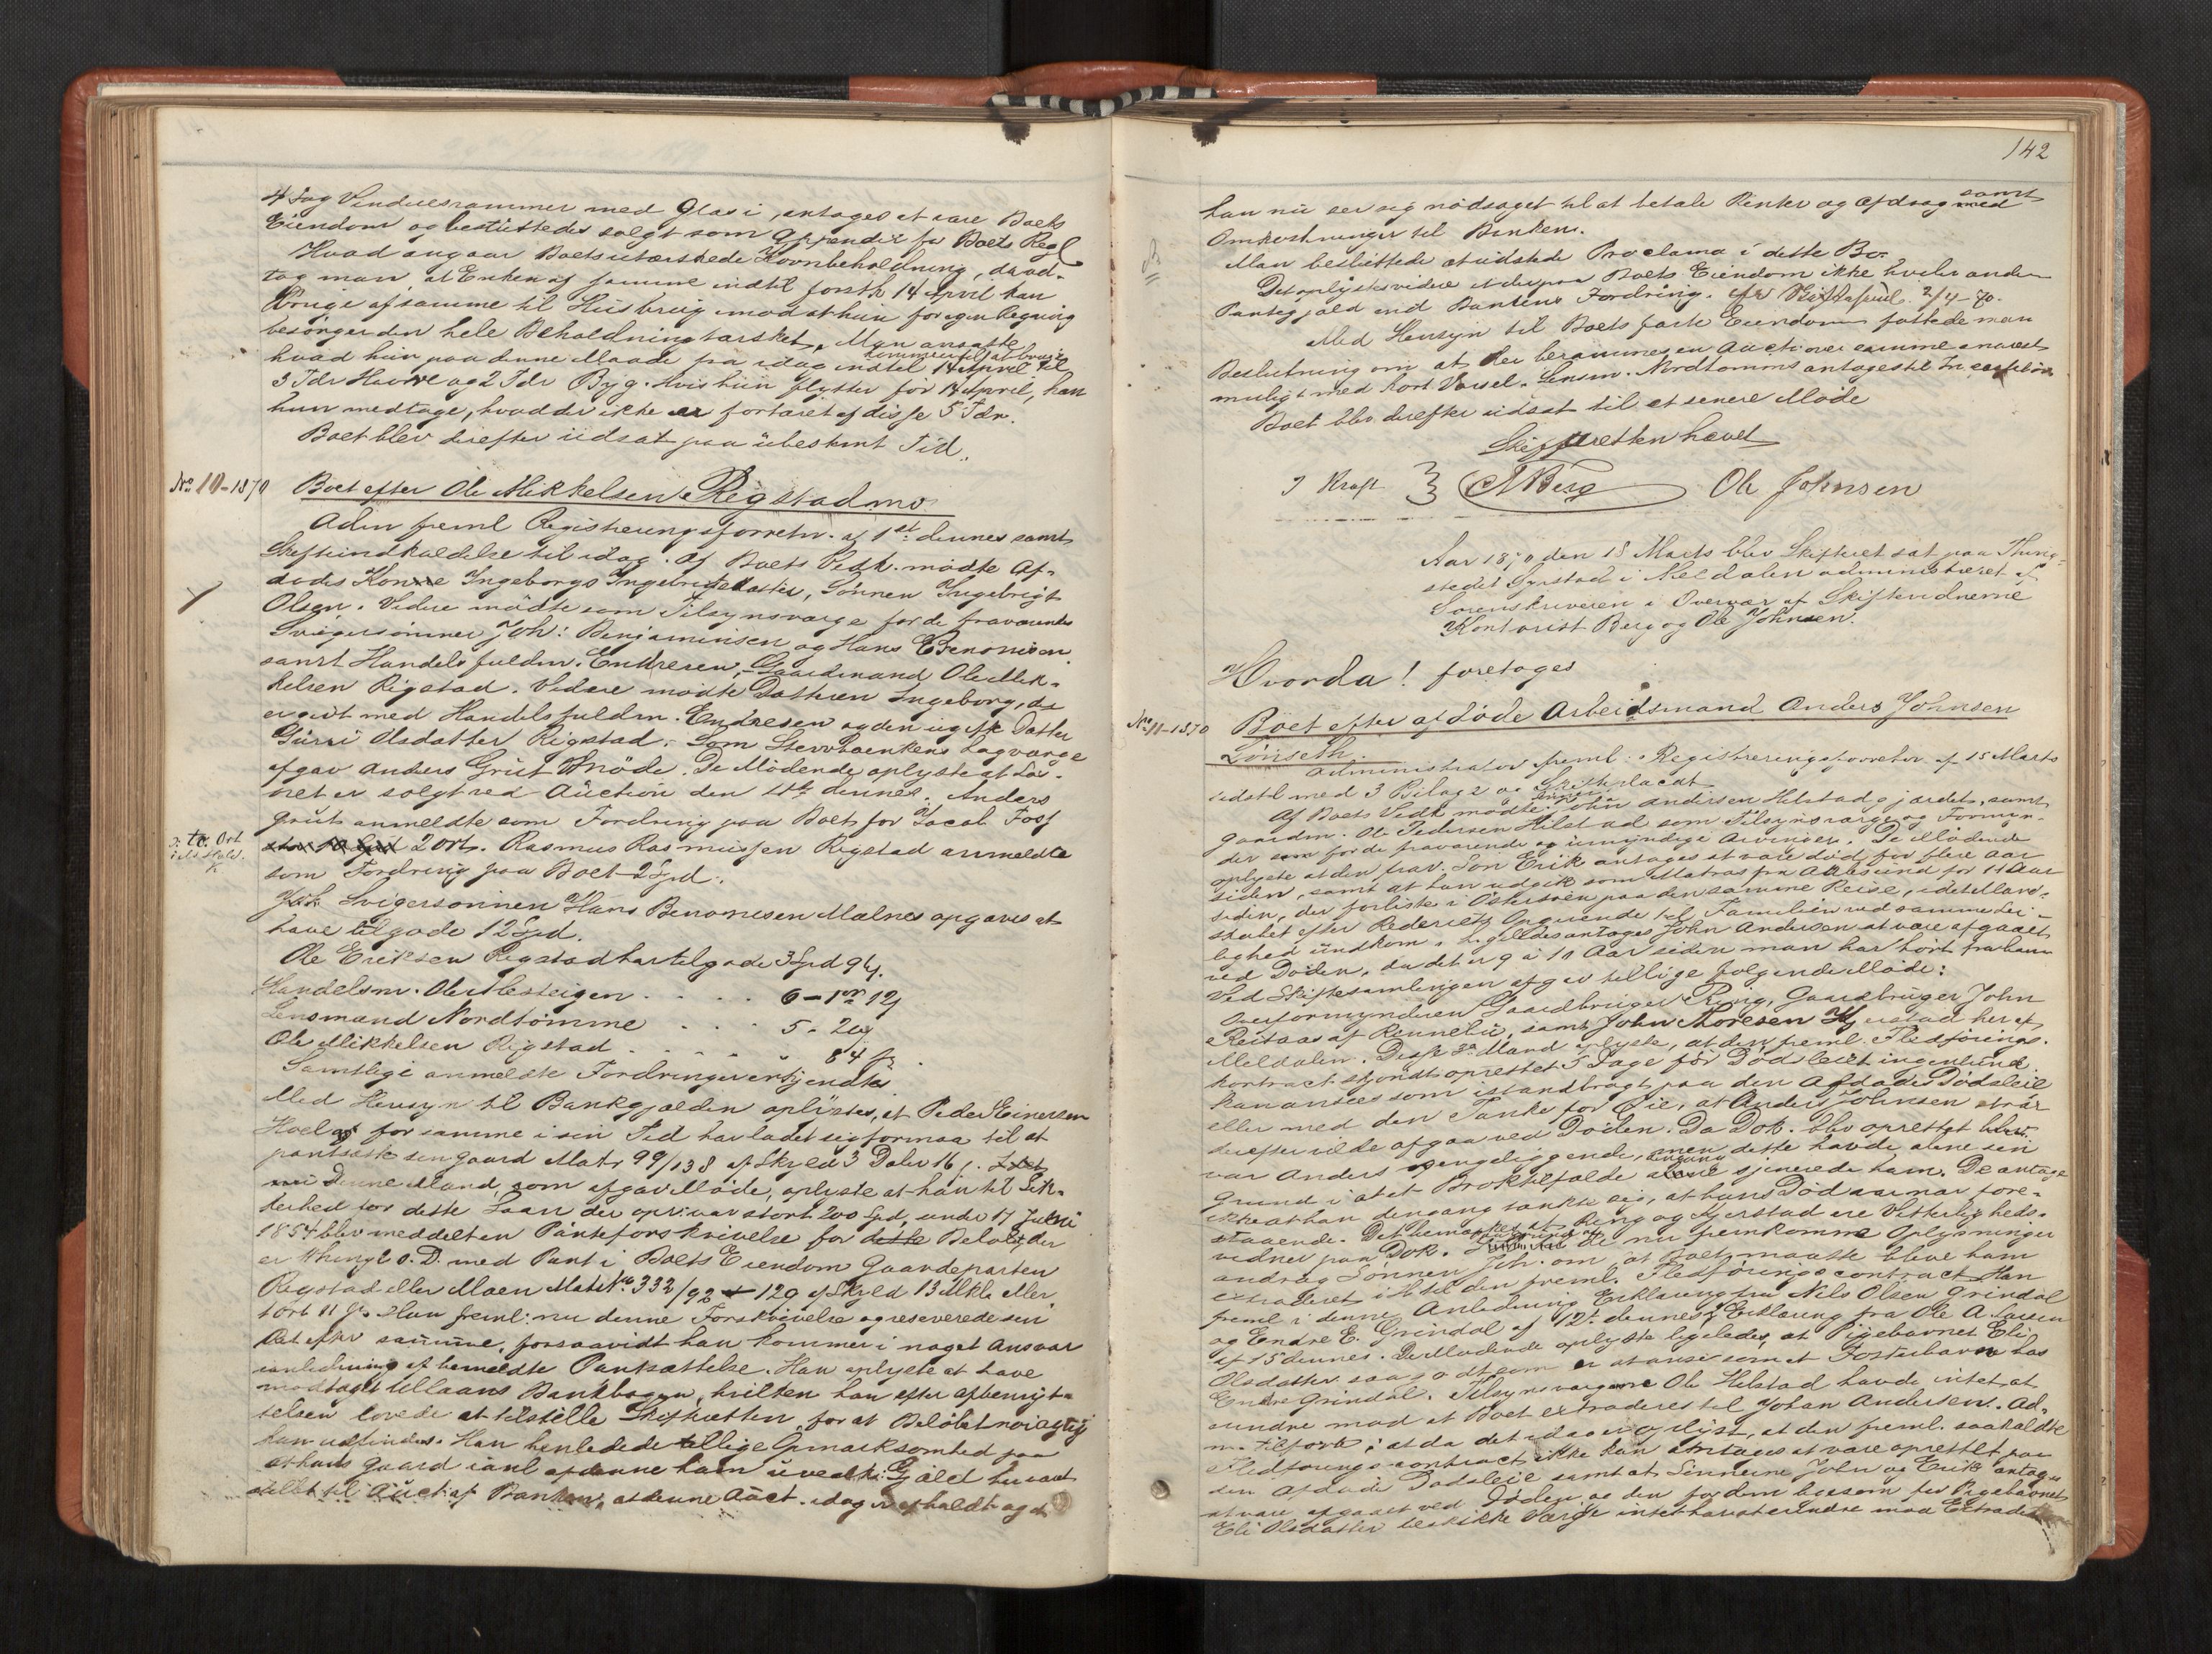 4 Fag Vinduesrammer med Glas i, antages at være Boets
Eiendom og besluttedes solgt som Appendix for Boets Regl
Hvad angaar Boets utærskede Kornbeholdning, da ved-
tog man, at Enken af samme indtil førstk 14 April kan
bruge af samme til Husbrug mod at hun for egen Regning
besørger den hele Beholdning tærsket. Man ansatte
hvad hun paa denne Maade fra idag indtil 14 April kommer til at bruge til
3 Tdr Havre og 2 Tdr Byg. Hvis hun flytter før 14 April, kan
hun medtage, hvad der ikke er fortæret af disse 5 Tdr.
Boet blev derefter udsat paa ubestemt Tid.
No 10-1870 Boet efter Ole Mikkelsen Rigstadmo
Adm freml Registreringsforretn. af 1st dennes samt
Skifteindkaldelse til idag. Af Boets Vedk. mødte Af-
dødes Kone Ingeborg Ingebrigtsdatter, Sønnen Ingebrigt
Olsen. Videre mødte som Tilsynsværge for de fraværende
Svigersønner Joh: Benjaminsen og Hans Benonisen
samt Handelsfuldm. Endresen, Gaardmand Ole Mik-
kelsen Rigstad. Videre mødte Datteren Ingeborg, der
er gift med Handelsfuldm. Endresen og den ugifte Datter
Gurri Olsdatter Rigstad. Som Stervboenkens Lagværge
afgav Anders Grut Møde. De Mødende oplyste at Løs-
øret er solgt ved Auction den 11te dennes. Anders
Grut anmeldte som Fordring paa Boet for Jacob Foss
2 Ort. Rasmus Rasmussen Rigstad anmeldte
som Fordring paa Boet 2 Spd.
Svigersønnen Hans Benonisen Malnes opgaves at
have tilgode 12 Spd.
Ole Eriksen Rigstad har tilgode 3 Spd 94
Handelsm. Ole Mesteigen . . . . 6 - 1 ort 12
Lensmand Nordtømme . . . 5 - 2
Ole Mikkelsen Rigstad . . . . . 84
Samtlige anmeldte Fordringer erkjendtes
Med Hensyn til Bankgjælden oplystes, at Peder Einersen
Hoel for samme i sin Tid har ladet sig formaa til at
pantsætte sin gaard Matr 99/138 af Skyld 3 Daler 16
Denne Mand, som afgav Møde, oplyste at han til Sik-
kerhed for dette Laan der opr. var stort 200 Spd, under 17 Juni
1854 blev meddelt en Pantsforskrivelse for Beløb, der
er thingl s. D. med Pant i Boets Eiendom Gaardeparten
Rigstad eller Moen Matr No 332/92 129 af Skyld 13 Mkl eller
1 ort 11 s. Han freml. nu denne Forskrivelse og reserverede sin
Ret efter samme, forsaavidt han kommer i noget Ansvar
i anledning af bemeldte Pantsættelse. Han oplyste at have
modtaget tillaans Bankbogen, hvilken han efter afbenyt-
telsen lovede at tilstille Skifteretten for at Beløbet nøiagtig
kan udfindes. Han henledede tillige Opmærksomhed paa
at hans Gaard i anl af denne ham uvedk. Gjæld har været
stillet til Auct af Banken, at denne Auct. idag er afholdt og at
142
han nu ser sig nødsaget til at betale Renter og Afdrag samt
Omkostninger til Banken.
Man besluttede at udstede Proclama i dette Bo.
Det oplystes videre at der paa Boets Eiendom ikke hviler anden
Pantegjæld end Bankens Fordring. 2/4-70.
Med Hensyn til Boets faste Eiendom fattede man
Beslutning om at der berammes en Auction over samme snarest
muligt med kort Varsel. Lensm. Nordtømme antages til Incassator
Boet blev derefter udsat til et senere Møde
Skifteretten hævet
J Kraft } Berg Ole Johnsen
Aar 1870 den 18 Marts blev Skifteret sat paa Thing-
stedet Gjøstad i Meldalen administreret af
Sorenskriveren i Overvær af Skiftevidnerne
Kontorist Berg og Ole Johnsen.
Hvorda! foretoges
No 11-1870 Boet efter afdøde Arbeidsmand Anders Johnsen
Lønseth.
Administrator freml: Registreringsforretn. af 15 Marts
sidstl med 3 Bilage og Skifteplacat
Af Boets Vedk mødte Sønnen Johan Andersen Hilstadgjærdet, samt
Gaardm. Ole Pedersen Hilstad som Tilsynsværge og Formyn-
der som for de fraværende og umyndige Arvinger. De Mødende
oplyste at den frav. Søn Erik antages at være død for flere Aar
siden, samt at han udgik som Matros fra Aalesund for 11 Aar
siden, der forliste i Østersøen paa den samme Reise, idet Mand-
skabet efter Rederiets Opgivende til Familien ved samme Lei-
lighed omkom, ligeledes antages John Andersen at være afgaaet
ved Døden, da det er 9 à 10 Aar siden man har hørt fra ham
Ved Skiftesamlingen afgav tillige følgende Møde:
Overformynderen Gaardbruger Ring, Gaardbruger John
Reitaas af Rennebu, samt John Thoresen Hjerstad her af
Meldalen. Disse 3de Mænd oplyste, at den freml. Fledførings-
kontract skjøndt oprettet 5 Dage før Dødsfaldet ingenlunde
kan ansees som istandbragt paa den Afdødes Dødsleie
eller med den Tanke for Øie, at Anders Johnsen strax
derefter vilde afgaa ved Døden. Da Dok. blev oprettet
var Anders sengeliggende, men dette havde alene sin
Grund i at et Broktilfælde dengang generede ham. De antage
ikke at han dengang tænkte sig, at hans Død var nær fore-
staaende. Det bemærkes at Ring og Hjerstad ere Vitterligheds-
vidner paa Dok. I Henhold til de nu fremkomne Oplysninger
androg Sønnen Joh. om at Boet maatte blive ham
extraderet i Hht den freml. Fledføringscontract. Han
freml i denne Anledning Erklæring fra Nils Olsen Grindal
og Endre E. Grindal af 12te dennes og Erklæring fra Ole A. Larsen
af 15 dennes. De Mødende oplyste ligeledes, at Pigebarnet Eli
Olsdatter saagodtsom er at anse som et Fosterbarn hos
Endre Grindal. Tilsynsværgerne Ole Hilstad havde intet at
erindre mod at Boet extraderes til Johan Andersen. Ad-
m. tilførte; at da det idag er oplyst, at den freml. saakaldte
Fledførings-contract ikke kan antages at være oprettet paa
den Afdødes Dødsleie samt at Sønnerne John og Erik antages
at være afgaaet ved Døden, og den for dem ligesom for Pigebarnet
Eli Olsdatter beskikkede Værge intet har at erindre mod Extradition